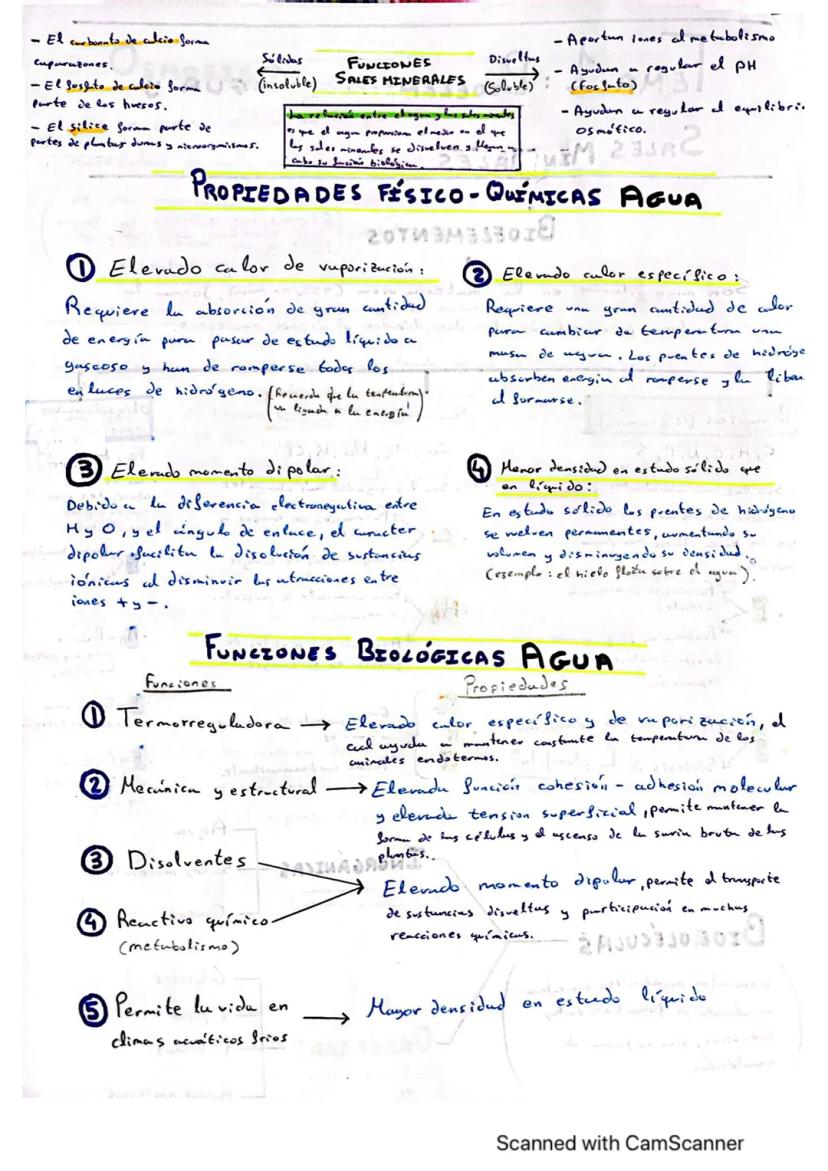 - El carbonato de calcio forma
caparazones.
- El fosfato de calcio forma
parte de los huesos.
- El sílice forma parte de
partes de plantas duras y microorganismos.
Sólidas
(insoluble)
FUNCIONES
SALES MINERALES
Disueltas
(Soluble)
:
- Aportan iones al metabolismo
- Ayudan a regular el PH
(fosfato)
- Ayudan a regular el equilibri
osmótico.
La relación entre el agua y las sales minerales
es que el agua proporciona el medio en el que
las sales minerales se disuelven y llevan a
cabo su función biológica.
PROPIEDADES FÍSICO-QUÍMICAS AGUA
① Elevado calor de vaporización:
Requiere la absorción de gran cantidad
de energía para pasar de estado líquido a
gaseoso y han de romperse todos los
enlaces de hidrógeno. (Recuerda que la temperatura
va ligada a la energía)
② Elevado calor específico:
Requiere una gran cantidad de calor
para cambiar de temperatura una
masa de agua. Los puentes de hidróge
absorben energía al romperse y la liber
al formarse.
③ Elevado momento dipolar:
Debido a la diferencia electronegativa entre
H y O, y el ángulo de enlace, el caracter
dipolar facilita la disolución de sustancias
iónicas al disminuir las atracciones entre
iones + y -.
④ Menor densidad en estado sólido que
en líquido:
En estado sólido los puentes de hidrógeno
se vuelven permanentes, aumentando su
volumen y disminuyendo su densidad.
(ejemplo: el hielo flota sobre el agua).
FUNCIONES BIOLÓGICAS AGUA
Funciones
Propiedades
① Termorreguladora → Elevado calor específico y de vaporización, el
cual ayuda a mantener constante la temperatura de los
animales endotermos.
② Mecánica y estructural → Elevada función cohesión - adhesión molecular
y elevada tension superficial, permite mantener la
forma de las células y el ascenso de la savia bruta de las
plantas.
③ Disolventes
④ Reactivo químico
(metabolismo)
Elevado momento dipolar, permite el transporte
de sustancias disueltas y participación en muchas
reacciones químicas.
⑤ Permite la vida en
climas acuáticos fríos
→ Mayor densidad en estado líquido
Scanned with CamScanner